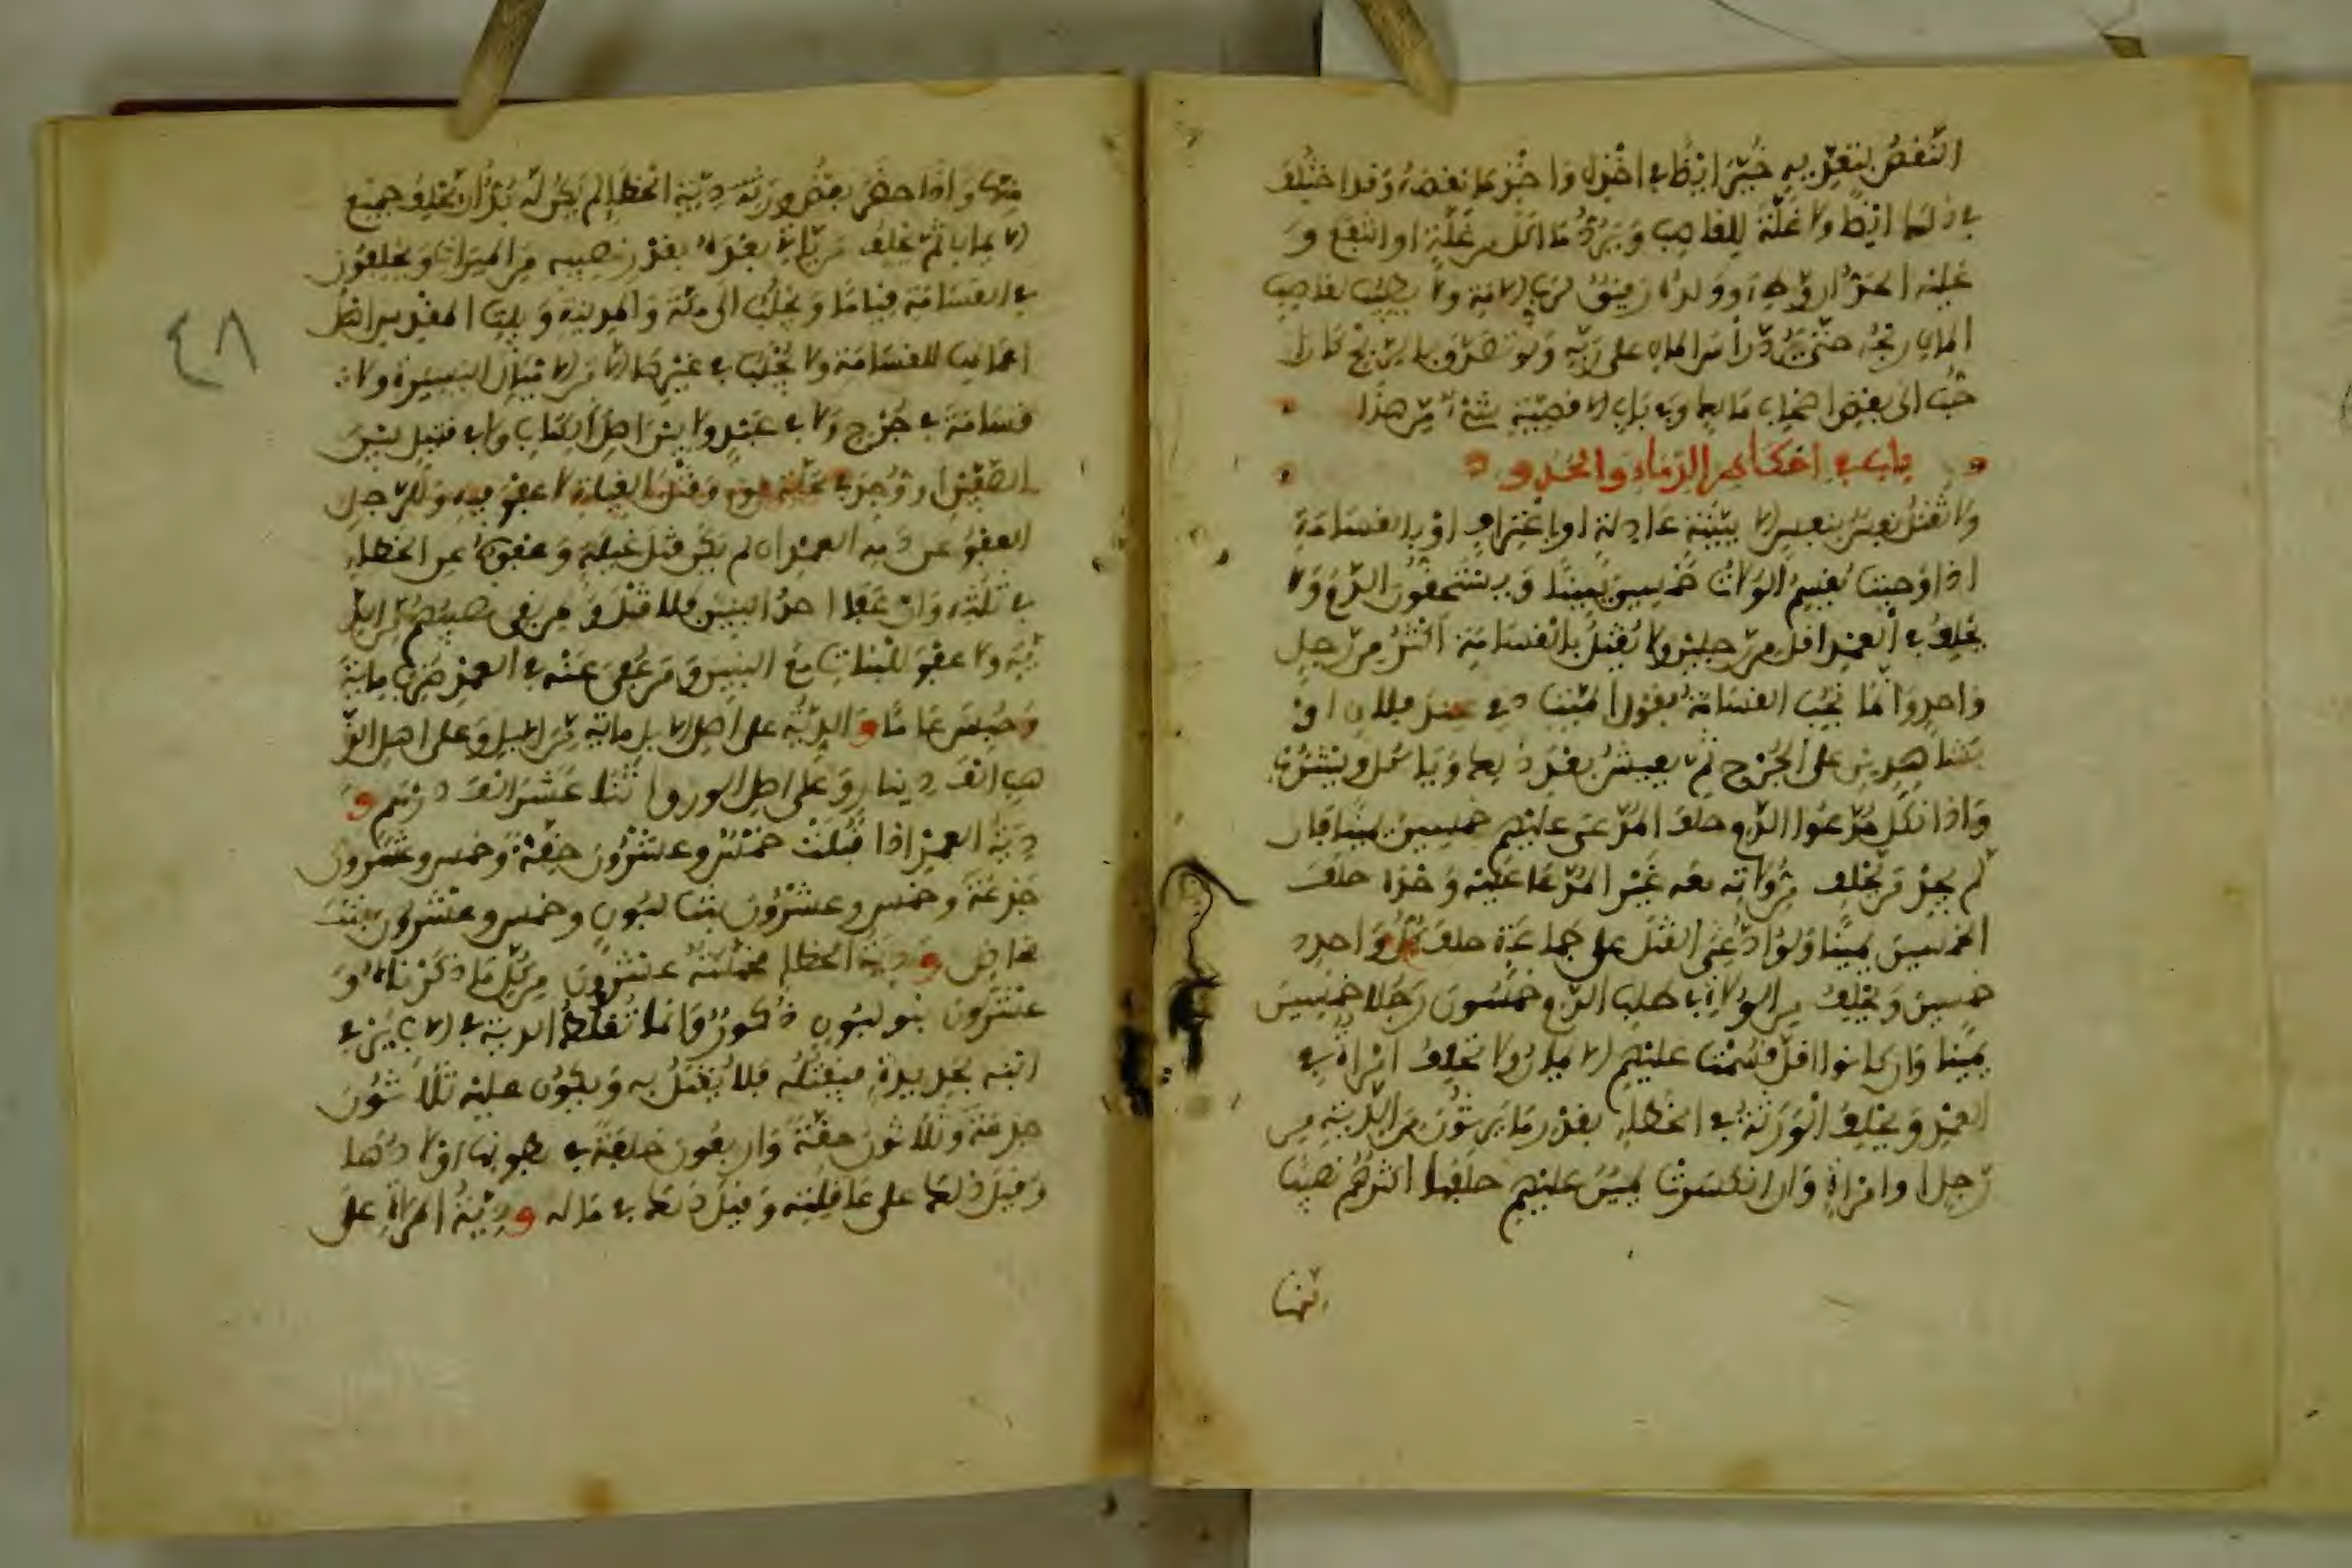 النقص بتعديه خير ايضا في اخذه واخذه ما نقصه وقد اختلف
في ذلك ايضا ولا غلة للغاصب ويرد ما اكل من غلة او انتفع و
عليه الحد ان وطئ وولده رقيق لرب الامة ولا يطيب لغاصب
المال ربحه حتى يرد رأس المال على ربه ولو تصدق بالربح كان ا
حب الى بعض اصحاب مالك وفي باب الاقضية شيء من هذا
باب في احكام الدماء والحدود
ولا تقتل نفس بنفس الا ببينة عادلة او باعتراف او بالقسامة
اذا وجبت يقسم الولاة خمسين يمينا ويستحقون الدم ولا
يحلف في العمد اقل من رجلين ولا يقتل بالقسامة اكثر من رجل
واحد وانما تجب القسامة بقول الميت دمي عند فلان او
بشاهدين على الجرح ثم يعيش بعد ذلك وياكل ويشرب
واذا نكل مدعوا الدم حلف المدعى عليهم خمسين يمينا فان
لم يجد من يحلف من ولاته معه غير المدعا عليه وحده حلف
الخمسين يمينا ولو ادعي القتل على جماعة حلف كل واحد
خمسين ويحلف من الولاة في طلب الدم خمسون رجلا خمسين
يمينا وان كانوا اقل قسمت عليهم الايمان ولا تحلف امراة في
العمد ويحلف الورثة في الخطإ بقدر ما يرثون من الدية من
رجل او امراة وان انكسرت يمين عليهم حلفها اكثرهم نصيبا
منها
منها واذا حضر بعض ورثة دية الخطإ لم يكن له بد ان يحلف جميع
الايمان ثم يحلف من ياتي بعده بقدر نصيبه من الميراث ويحلفون
في القسامة قياما ويجلب الى مكة والمدينة وبيت المقدس اهل
اعمالها للقسامة ولا يجلب في غيرها الا من الاميال اليسيرة ولا
قسامة في جرح ولا في عبد ولا بين اهل الكتاب ولا في قتيل بين
الصفين او وجد في محلة قوم وقتل الغيلة لا عفو فيه وللرجل
العفو عن دمه العمد ان لم يكن قتل غيلة وعفوه عن الخطإ
في ثلثه وان عفا احد البنين فلا قتل ولمن بقي نصيبهم من الد
ية ولا عفو للبنات مع البنين ومن عفي عنه في العمد ضرب ماية
وحبس عاما والدية على اهل الابل ماية من الابل وعلى اهل الذ
هب الف دينار وعلى اهل الورق اثنا عشر الف درهم و
دية العمد اذا قبلت خمس وعشرون حقة وخمس وعشرون
جذعة وخمس وعشرون بنت لبون وخمس وعشرون بنت
مخاض ودية الخطإ مخمسة عشرون من كل ما ذكرناه و
عشرون بنو لبون ذكور وانما تغلظ الدية في الاب يرمي
ابنه بحديدة فيقتله فلا يقتل به ويكون عليه ثلاثون
جذعة وثلاثون حقة واربعون خلفة في بطونها اولادها
وقيل ذلك على عاقلته وقيل ذلك في ماله ودية المراة على
٤٨